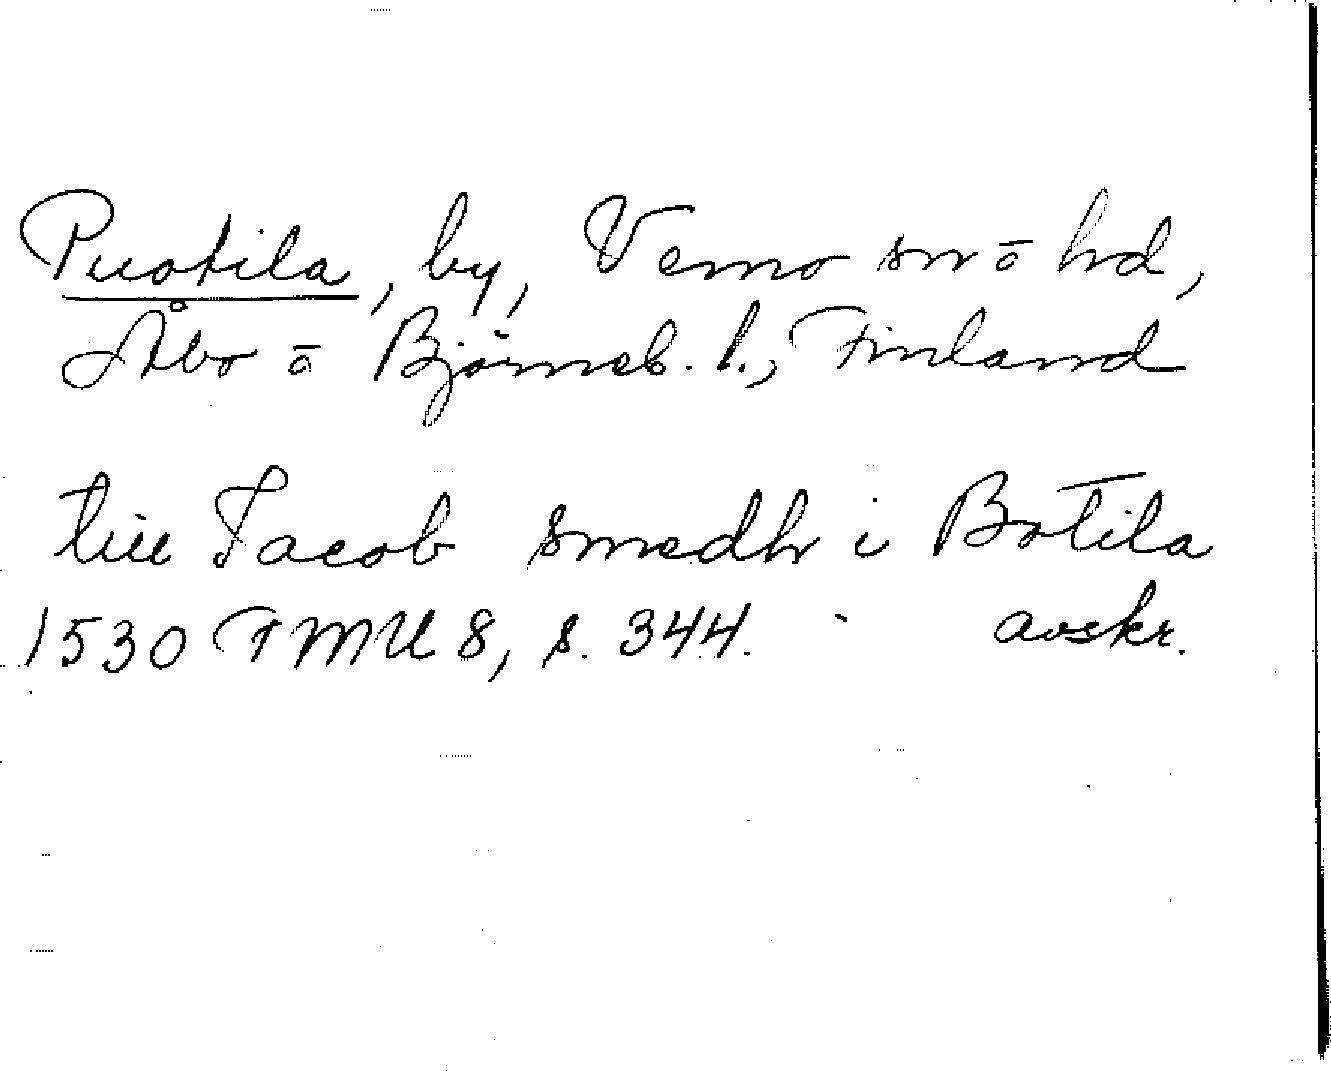 Puotila, by, Vemo sn o hd,
Åbo o Björneb. l., Finland
till Jacob smedh i Botila
1530 TMU 8, s. 344. avskr.